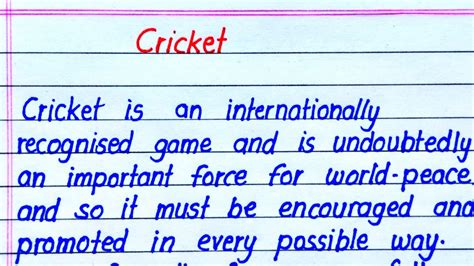 Cricket
Cricket is an internationally
recognised game and is undoubtedly
an important force for world-peace
and so it must be encouraged and
promoted in every possible way.